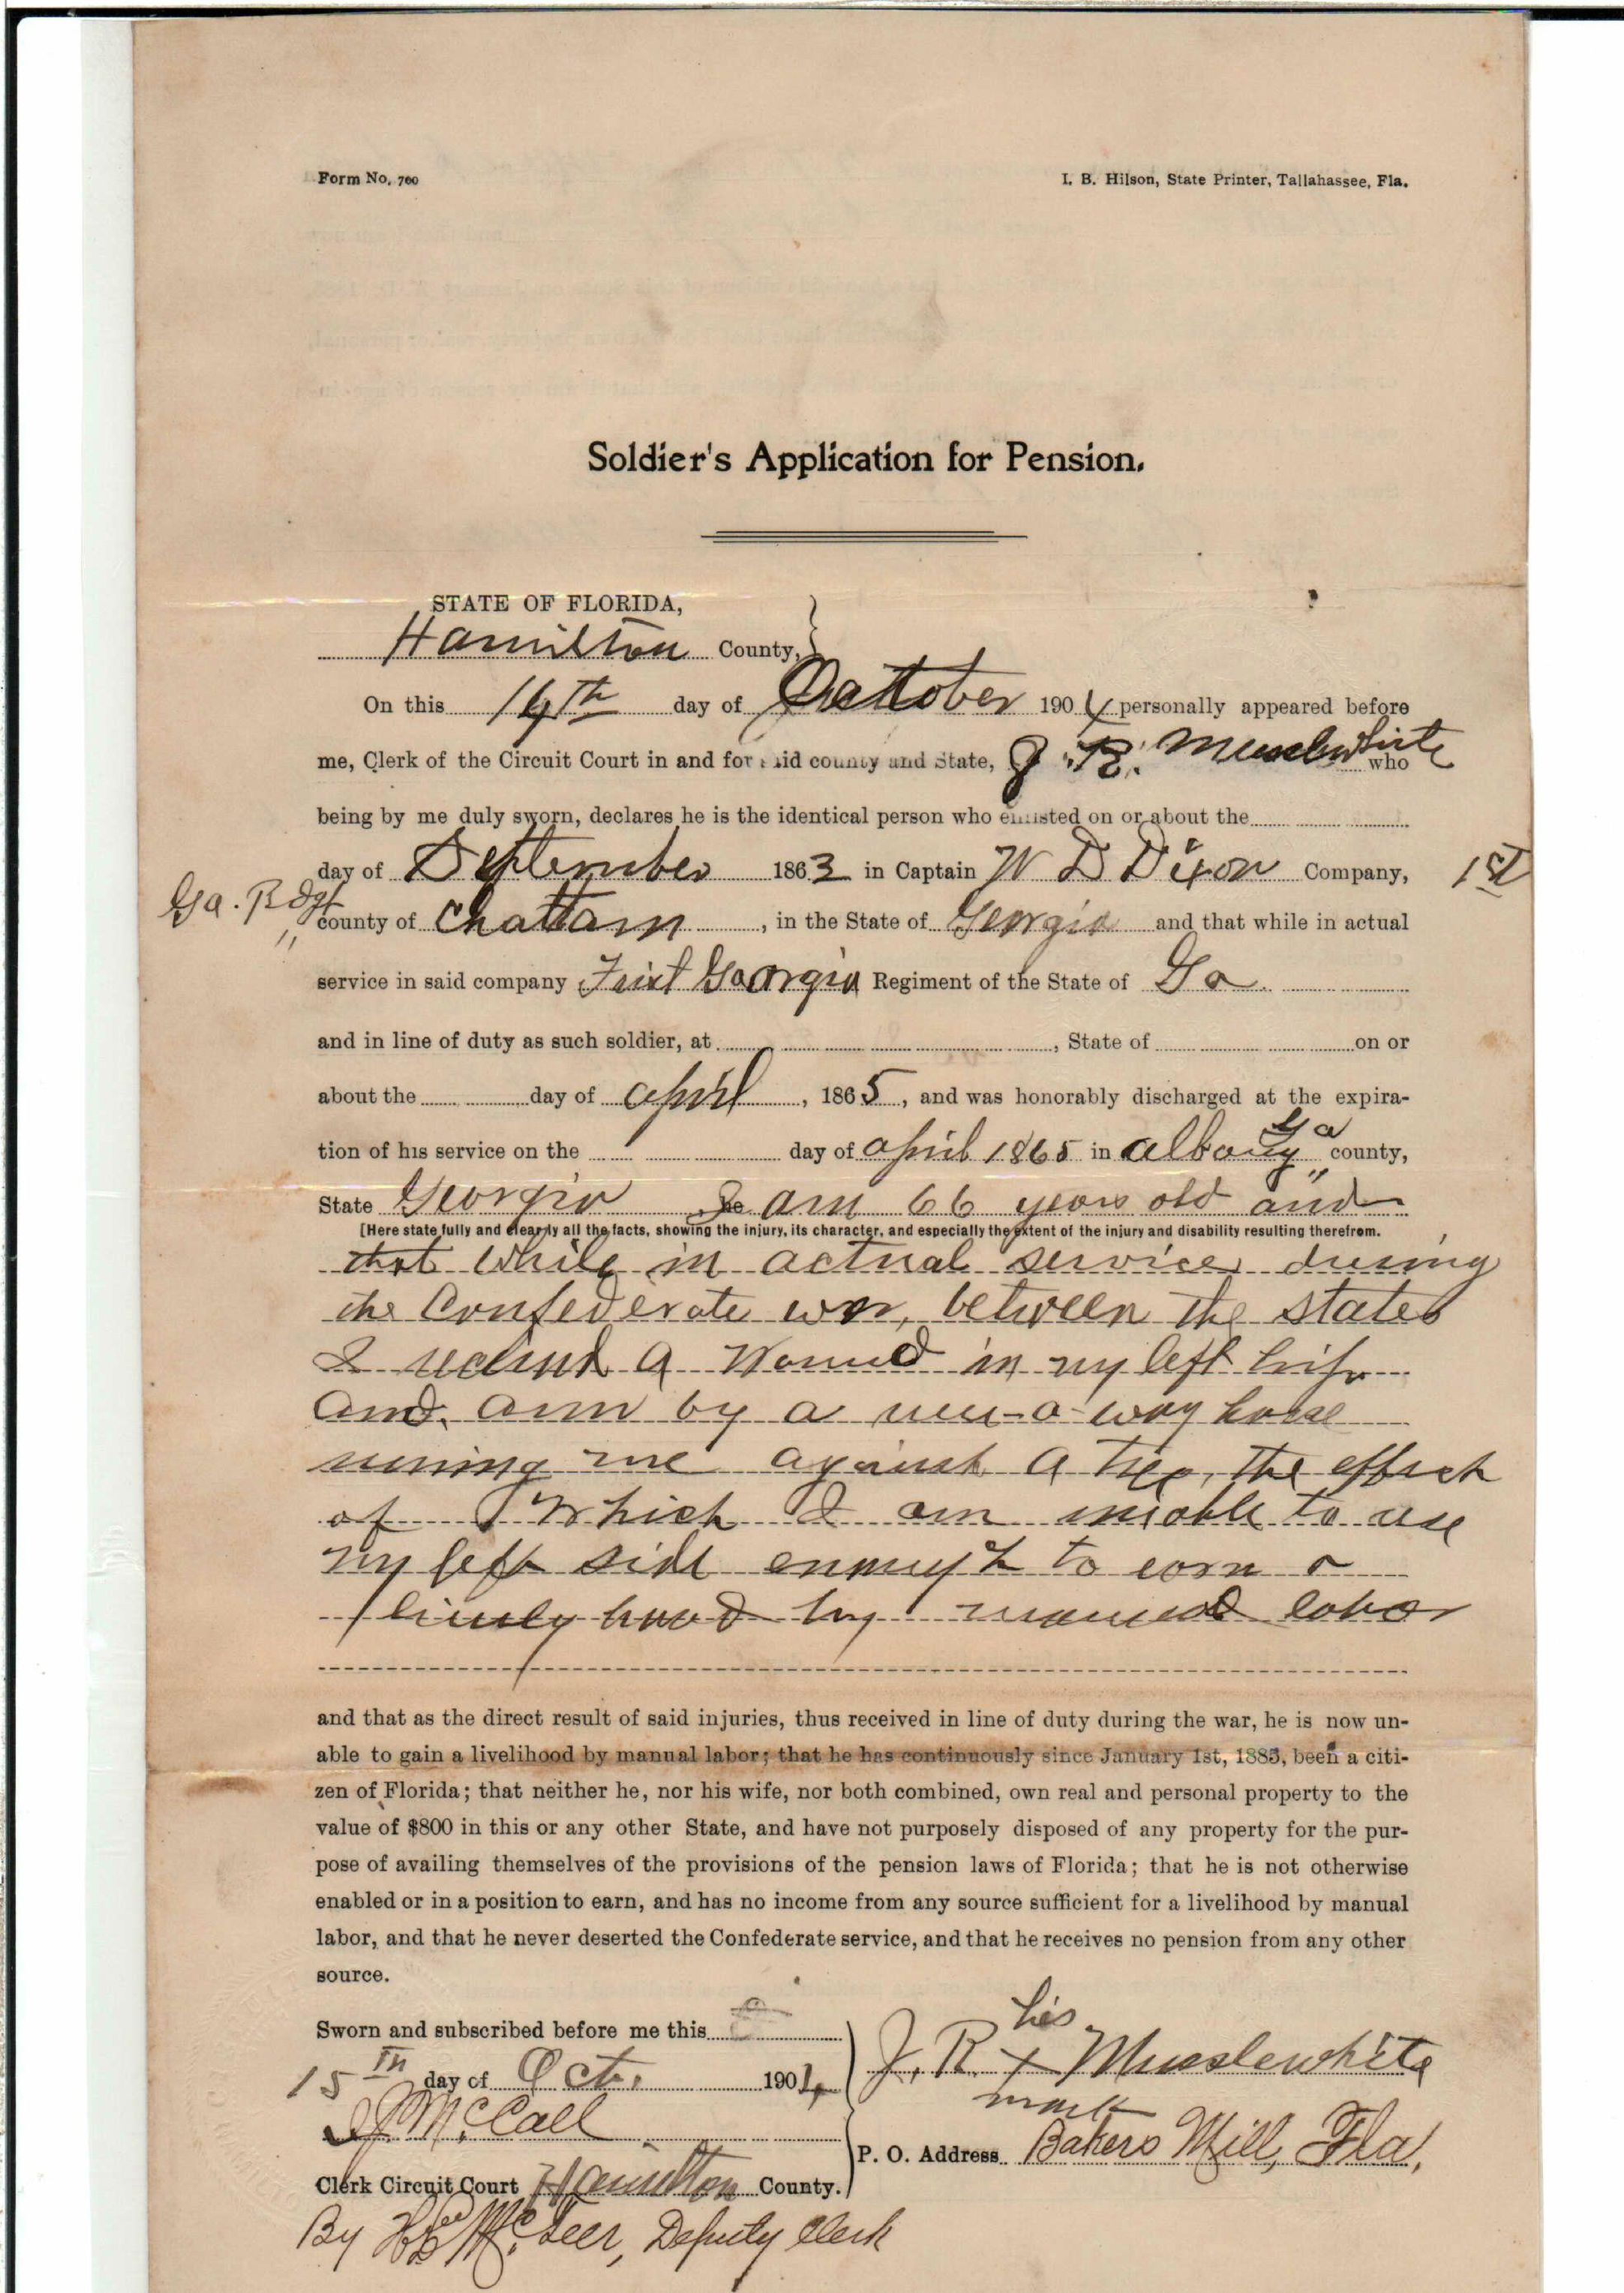 Form No. 700
I. B. Hilson, State Printer, Tallahassee, Fla.
Soldier's Application for Pension.
STATE OF FLORIDA,
Hamilton County,
On this 14th day of Occtober 1904 personally appeared before
me, Clerk of the Circuit Court in and for said county and State, J. R. Musslewhite who
being by me duly sworn, declares he is the identical person who enlisted on or about the
day of September 1863 in Captain W D Dixon Company, 1st
Ga. Regt
county of Chattam, in the State of Georgia and that while in actual
service in said company First Georgia Regiment of the State of Ga
and in line of duty as such soldier, at , State of on or
about the day of april, 1865, and was honorably discharged at the expira-
tion of his service on the day of april 1865 in albany Ga county,
State Georgia I am 66 years old and
[Here state fully and clearly all the facts, showing the injury, its character, and especially the extent of the injury and disability resulting therefrom.
that while in actual service during
the Confederate war, between the states
I a Wound in my left hip
and arm by a run-a-way horse
runing me against a tree, the effect
of Which I am unable to use
my left side enough to earn a
hood by labor
and that as the direct result of said injuries, thus received in line of duty during the war, he is now un-
able to gain a livelihood by manual labor; that he has continuously since January 1st, 1885, been a citi-
zen of Florida; that neither he, nor his wife, nor both combined, own real and personal property to the
value of $800 in this or any other State, and have not purposely disposed of any property for the pur-
pose of availing themselves of the provisions of the pension laws of Florida; that he is not otherwise
enabled or in a position to earn, and has no income from any source sufficient for a livelihood by manual
labor, and that he never deserted the Confederate service, and that he receives no pension from any other
source.
Sworn and subscribed before me this
15th day of Oct. 1904
McCall
Clerk Circuit Court Hamilton County.
By Deputy Clerk
his
J. R. x Musslewhite
mark
P. O. Address Bakers Mill, Fla.